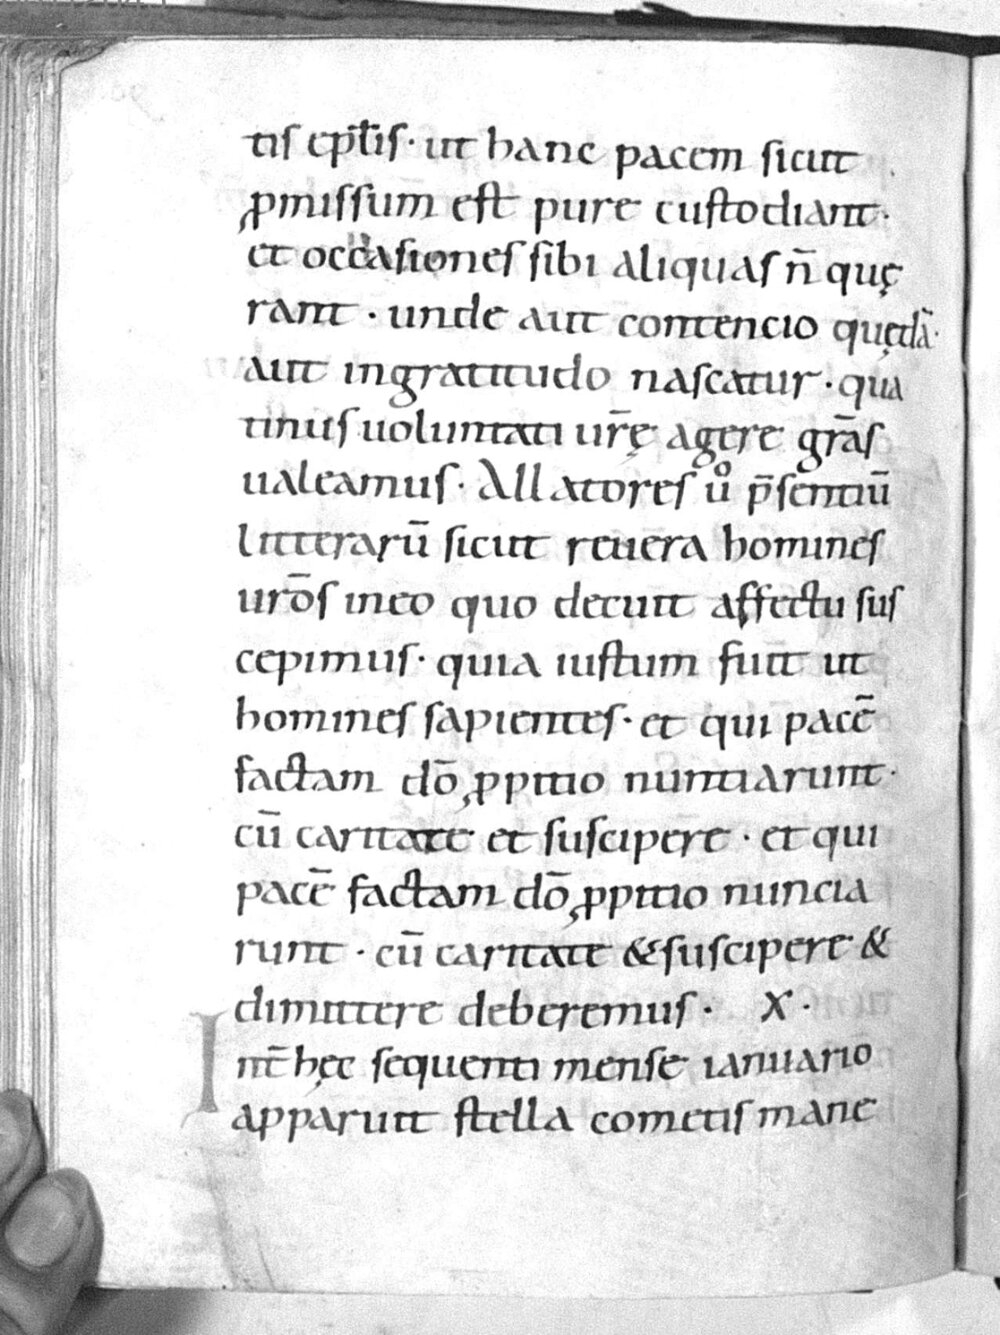 tis ep̄tis· ut hanc pacem sicut
ꝓmissum est pure custodiant·
et occasiones sibi aliquas n̄ quę
rant · unde aut contencio quędā·
aut ingratitudo nascatur · qua
tinus uoluntati ur̄ę agere grā̄s
ualeamus· Allatores uͦ p̄sentiū
litterarū sicut reuera homines
urōs ineo quo decuit affectu sus
cepimus· quia iustum fuit ut
homines sapientes· et qui pacē
factam dō ꝓpitio nuntiarunt·
cū caritate et suscipere · et qui
pacē factam dō ꝓpitio nuncia
runt · cū caritate & suscipere &
dimittere deberemus · X ·
Int̄ hęc sequenti mense ianuario
apparuit stella cometis mane